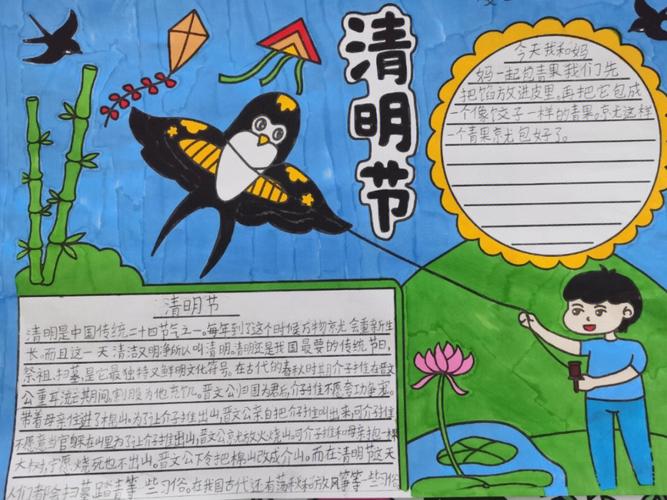 清明节
今天我和妈
妈一起包青果我们先
把馅放进皮里,再把它包成
一个像饺子一样的青果。京尤这样
一个青果京尤包好了。
清明节
清明是中国传统二十四节气之一。每年到了这个时候万物京尤会重新生
长。而且这一天清洁又明净所以叫清明。清明还是我国最要的传统节日,
祭祖、扫墓是它最独特又鲜明文化符号。在古代的春秋时期介子推在晋
公重耳流亡期间,割股为他充饥。晋文公归国为君后,介子推不愿夸功争宠。
带着母亲住进了棉山。为了让介子推出山,晋文公亲自把介子推叫出来,可介子推
不愿意当官躲在山里为了让介子推出山,晋文公京尤放火烧山。可介子推和母亲抱一棵
大树,宁愿烧死也不出山。晋文公下令把棉山改成介山。而在清明节这天
人们都会扫墓踏青等一些习俗。在我国古代还有荡秋和放风筝等一些习俗